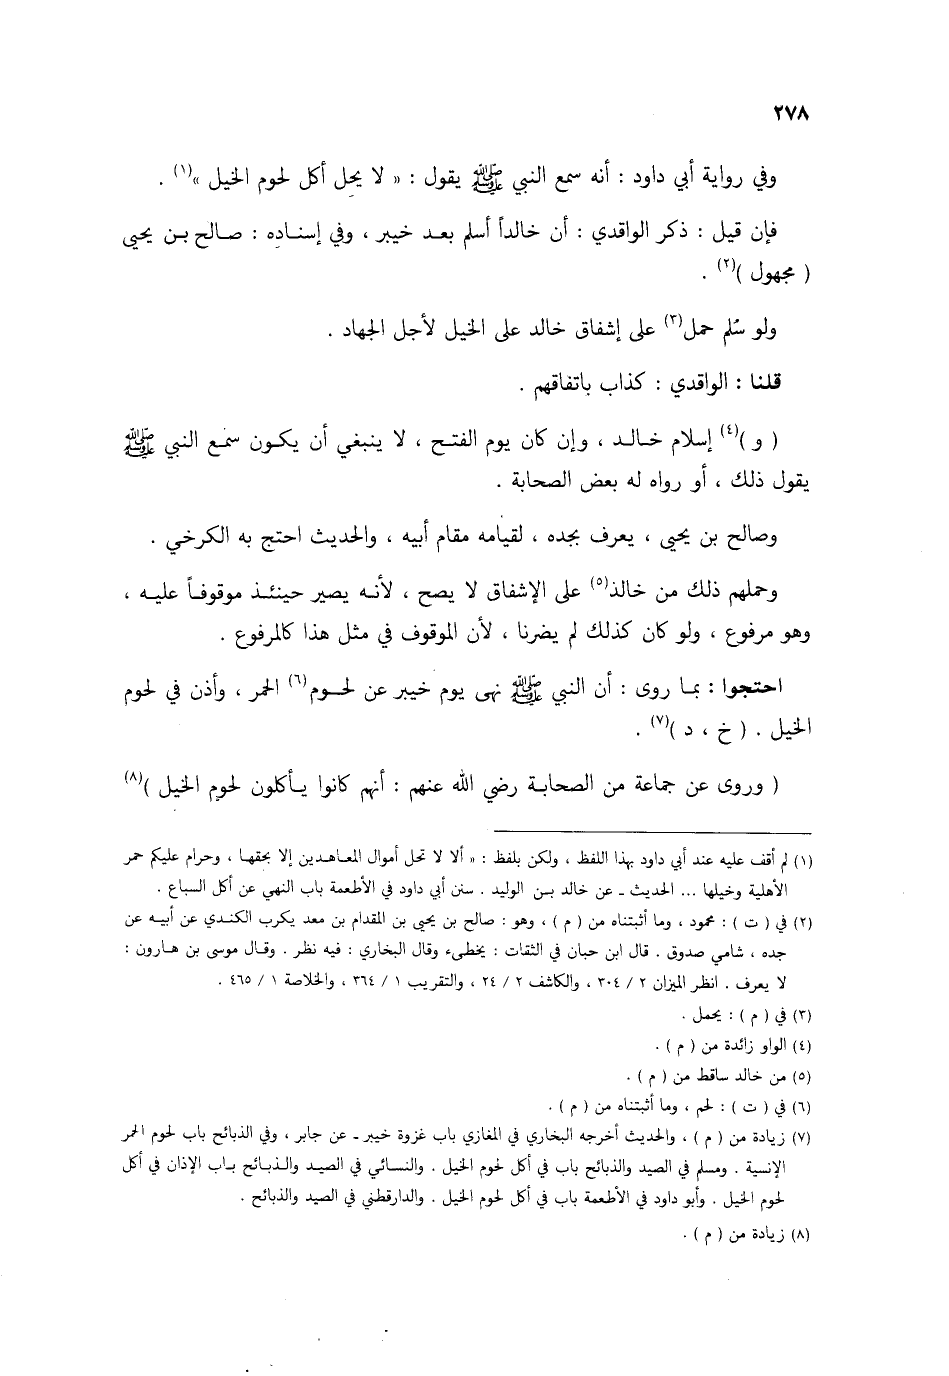 ٢٧٨
وفي رواية أبي داود : أنه سمع النبي ﷺ يقول : « لا يحل أكل لحوم الخيل »(١) .
فإن قيل : ذكر الواقدي : أن خالداً أسلم بعد خيبر ، وفي إسناده : صالح بن يحيى
( مجهول )(٢) .
ولو سُلم حمل(٣) على إشفاق خالد على الخيل لأجل الجهاد .
قلنا : الواقدي : كذاب باتفاقهم .
( و )(٤) إسلام خالد ، وإن كان يوم الفتح ، لا ينبغي أن يكون سمع النبي ﷺ
يقول ذلك ، أو رواه له بعض الصحابة .
وصالح بن يحيى ، يعرف بجده ، لقيامه مقام أبيه ، والحديث احتج به الكرخي .
وحملهم ذلك من خالد(٥) على الإشفاق لا يصح ، لأنه يصير حينئذ موقوفاً عليه ،
وهو مرفوع ، ولو كان كذلك لم يضرنا ، لأن الموقوف في مثل هذا كالمرفوع .
احتجوا : بما روى : أن النبي ﷺ نهى يوم خيبر عن لحوم(٦) الحمر ، وأذن في لحوم
الخيل . ( خ ، د )(٧) .
( وروى عن جماعة من الصحابة رضي الله عنهم : أنهم كانوا يأكلون لحوم الخيل )(٨)
(١) لم أقف عليه عند أبي داود بهذا اللفظ ، ولكن بلفظ : « ألا لا تحل أموال المعاهدين إلا بحقها ، وحرام عليكم حمر
الأهلية وخيلها ... الحديث ـ عن خالد بن الوليد . سنن أبي داود في الأطعمة باب النهي عن أكل السباع .
(٢) في ( ت ) : محمود ، وما أثبتناه من ( م ) ، وهو : صالح بن يحيى بن المقدام بن معد يكرب الكندي عن أبيه عن
جده ، شامي صدوق . قال ابن حبان في الثقات : يخطىء وقال البخاري : فيه نظر . وقال موسى بن هارون :
لا يعرف . انظر الميزان ٢ / ٣٠٤ ، والكاشف ٢ / ٢٤ ، والتقريب ١ / ٣٦٤ ، والخلاصة ١ / ٤٦٥ .
(٣) في ( م ) : يحمل .
(٤) الواو زائدة من ( م ) .
(٥) من خالد ساقط من ( م ) .
(٦) في ( ت ) : لحم ، وما أثبتناه من ( م ) .
(٧) زيادة من ( م ) ، والحديث أخرجه البخاري في المغازي باب غزوة خيبر ـ عن جابر ، وفي الذبائح باب لحوم الحمر
الإنسية . ومسلم في الصيد والذبائح باب في أكل لحوم الخيل . والنسائي في الصيد والذبائح باب الإذان في أكل
لحوم الخيل . وأبو داود في الأطعمة باب في أكل لحوم الخيل . والدارقطني في الصيد والذبائح .
(٨) زيادة من ( م ) .